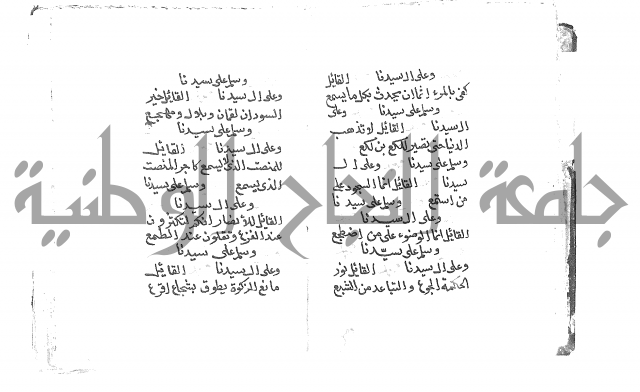 وعلى ال سيدنا القائل
كفى بالمرء اثما ان يحدث بكل ما يسمع
وسلم على سيدنا وعلى
ال سيدنا القائل لا تذهب
الدنيا حتى تصير للكع بن لكع
وسلم على سيدنا وعلى ال
سيدنا القائل انما السجود على
من استمع وسلم على سيدنا
وعلى ال سيدنا
القائل انما الوضوء على من اضطجع
وسلم على سيدنا
وعلى ال سيدنا القائل نور
الحكمة الجوع والتباعد من الشبع
وسلم على سيدنا
وعلى ال سيدنا القائل خير
السودان لقمان وبلال ومهجع
وسلم على سيدنا
وعلى ال سيدنا القائل
للمنصت الذي لا يسمع كاجر المنصت
الذي يسمع وسلم على سيدنا
وعلى ال سيدنا
القائل للانصار انكم لتكثرون
عند الفزع وتقلون عند الطمع
وسلم على سيدنا
وعلى ال سيدنا القائل
مانع الزكوة يطوق بشجاع اقرع
جامعة النجاح الوطنية